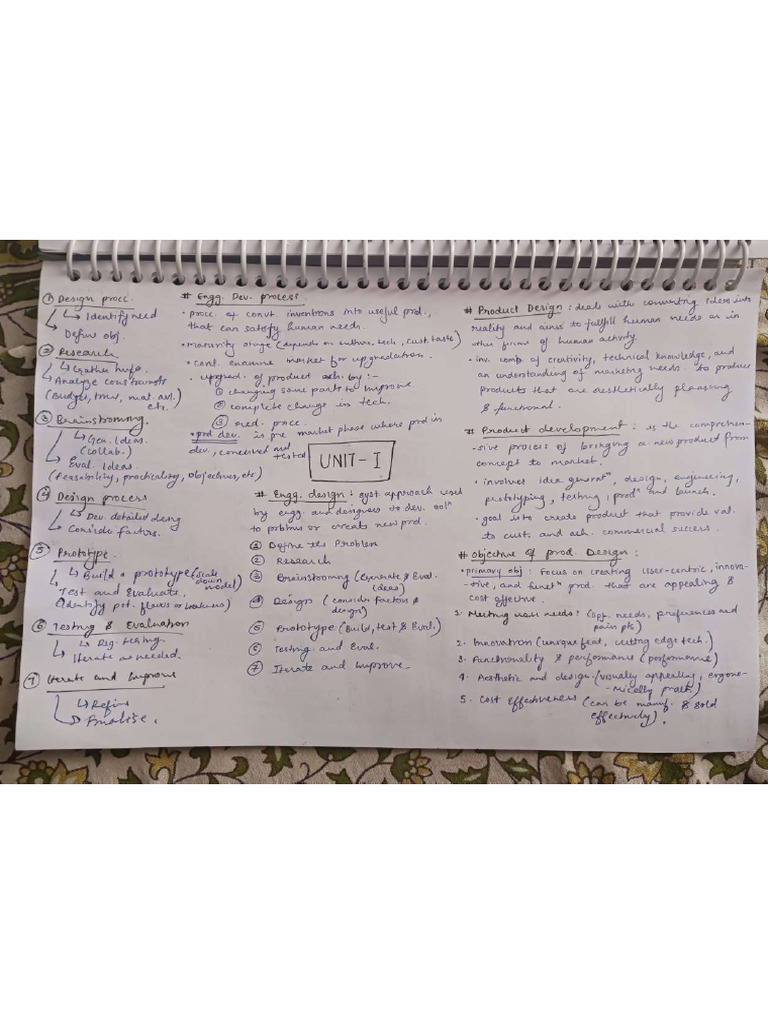 ① Design proce.
↳ Identify need
↳ Define obj.
② Research
↳ Gather info.
↳ Analyse constraints
(Budget, time, mat. avl.
etc.
③ Brainstorming
↳ Gen. Ideas.
(collab.)
↳ Eval. Ideas.
(feasibility, practicality, objectives, etc)
④ Design process
↳ Dev. detailed desing
↳ Consider factors.
⑤ Prototype.
↳ Build a prototype (scale
down
model)
↳ Test and Evaluate.
(Identify pot. flaws or weakness)
⑥ Testing & Evaluation
↳ Rig. testing
↳ Iterate as needed.
⑦ Iterate and Improve
↳ Refine
↳ Finalise.
# Engg. Dev. process
• proce. of convt. inventions into useful prod.,
that can satisfy human needs.
• maturity stage (depends on culture, tech, cust. taste)
• cont. examine market for upgradation.
• upgrad. of product ach. by:-
① changing some parts to improve
② complete change in tech.
③ proce.
• prod dev. is pre market phase where prod in
dev, conceived and
tested
UNIT-I
# Engg. design: syst approach used
by engg and designers to dev. solⁿ
to problms or create new prod.
① Define the Problem
② Research
③ Brainstorming (Generate & Eval.
ideas)
④ Design (consider factors &
design)
⑤ Prototype (Build, test & Eval.)
⑥ Testing and Eval.
⑦ Iterate and Improve
# Product Design: deals with converting ideas into
reality and aims to fulfill human needs as in
other forms of human activity.
• inv. comb of creativity, technical knowledge, and
an understanding of marketing needs. to produce
products that are aesthetically pleasing
& functional.
# Product development: is the comprehen-
-sive process of bringing a new product from
concept to market.
• involves idea generatⁿ, design, engineering,
prototyping, testing, prodⁿ and launch.
• goal is to create product that provide val.
to cust. and ach. commercial success.
# Objective of prod. Design:
• primary obj: Focus on creating user-centric, innova-
-tive, and functⁿ prod. that are appealing &
cost effective.
1. Meeting user needs: needs, preferences and
pain pts)
2. Innovation (unique feat, cutting edge tech.)
3. Functionality & performance (performance)
4. Aesthetic and design (visually appealing, ergono-
-mically pract.)
5. Cost Effectiveness (can be manuf. & sold
effectively).